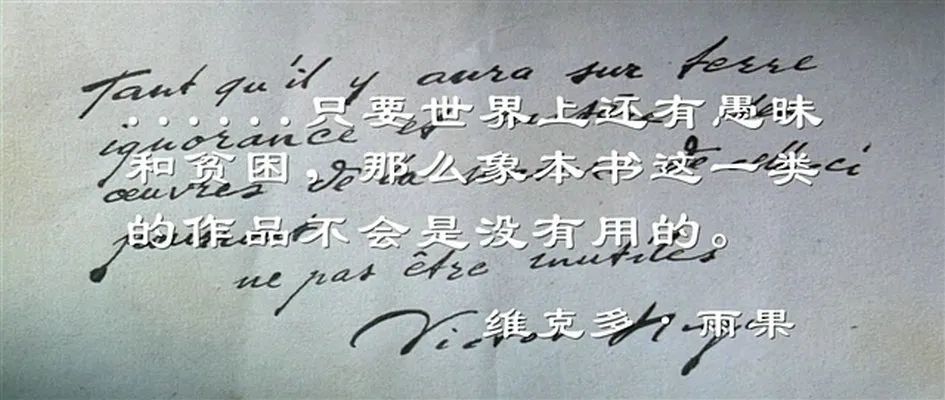 Tant qu'il y aura sur terre
......只要世界上还有愚昧
ignorance et
和贫困，那么象本书这一类
œuvres de la de
的作品不会是没有用的。
ne pas être inutiles
维克多·雨果
Victor Hugo